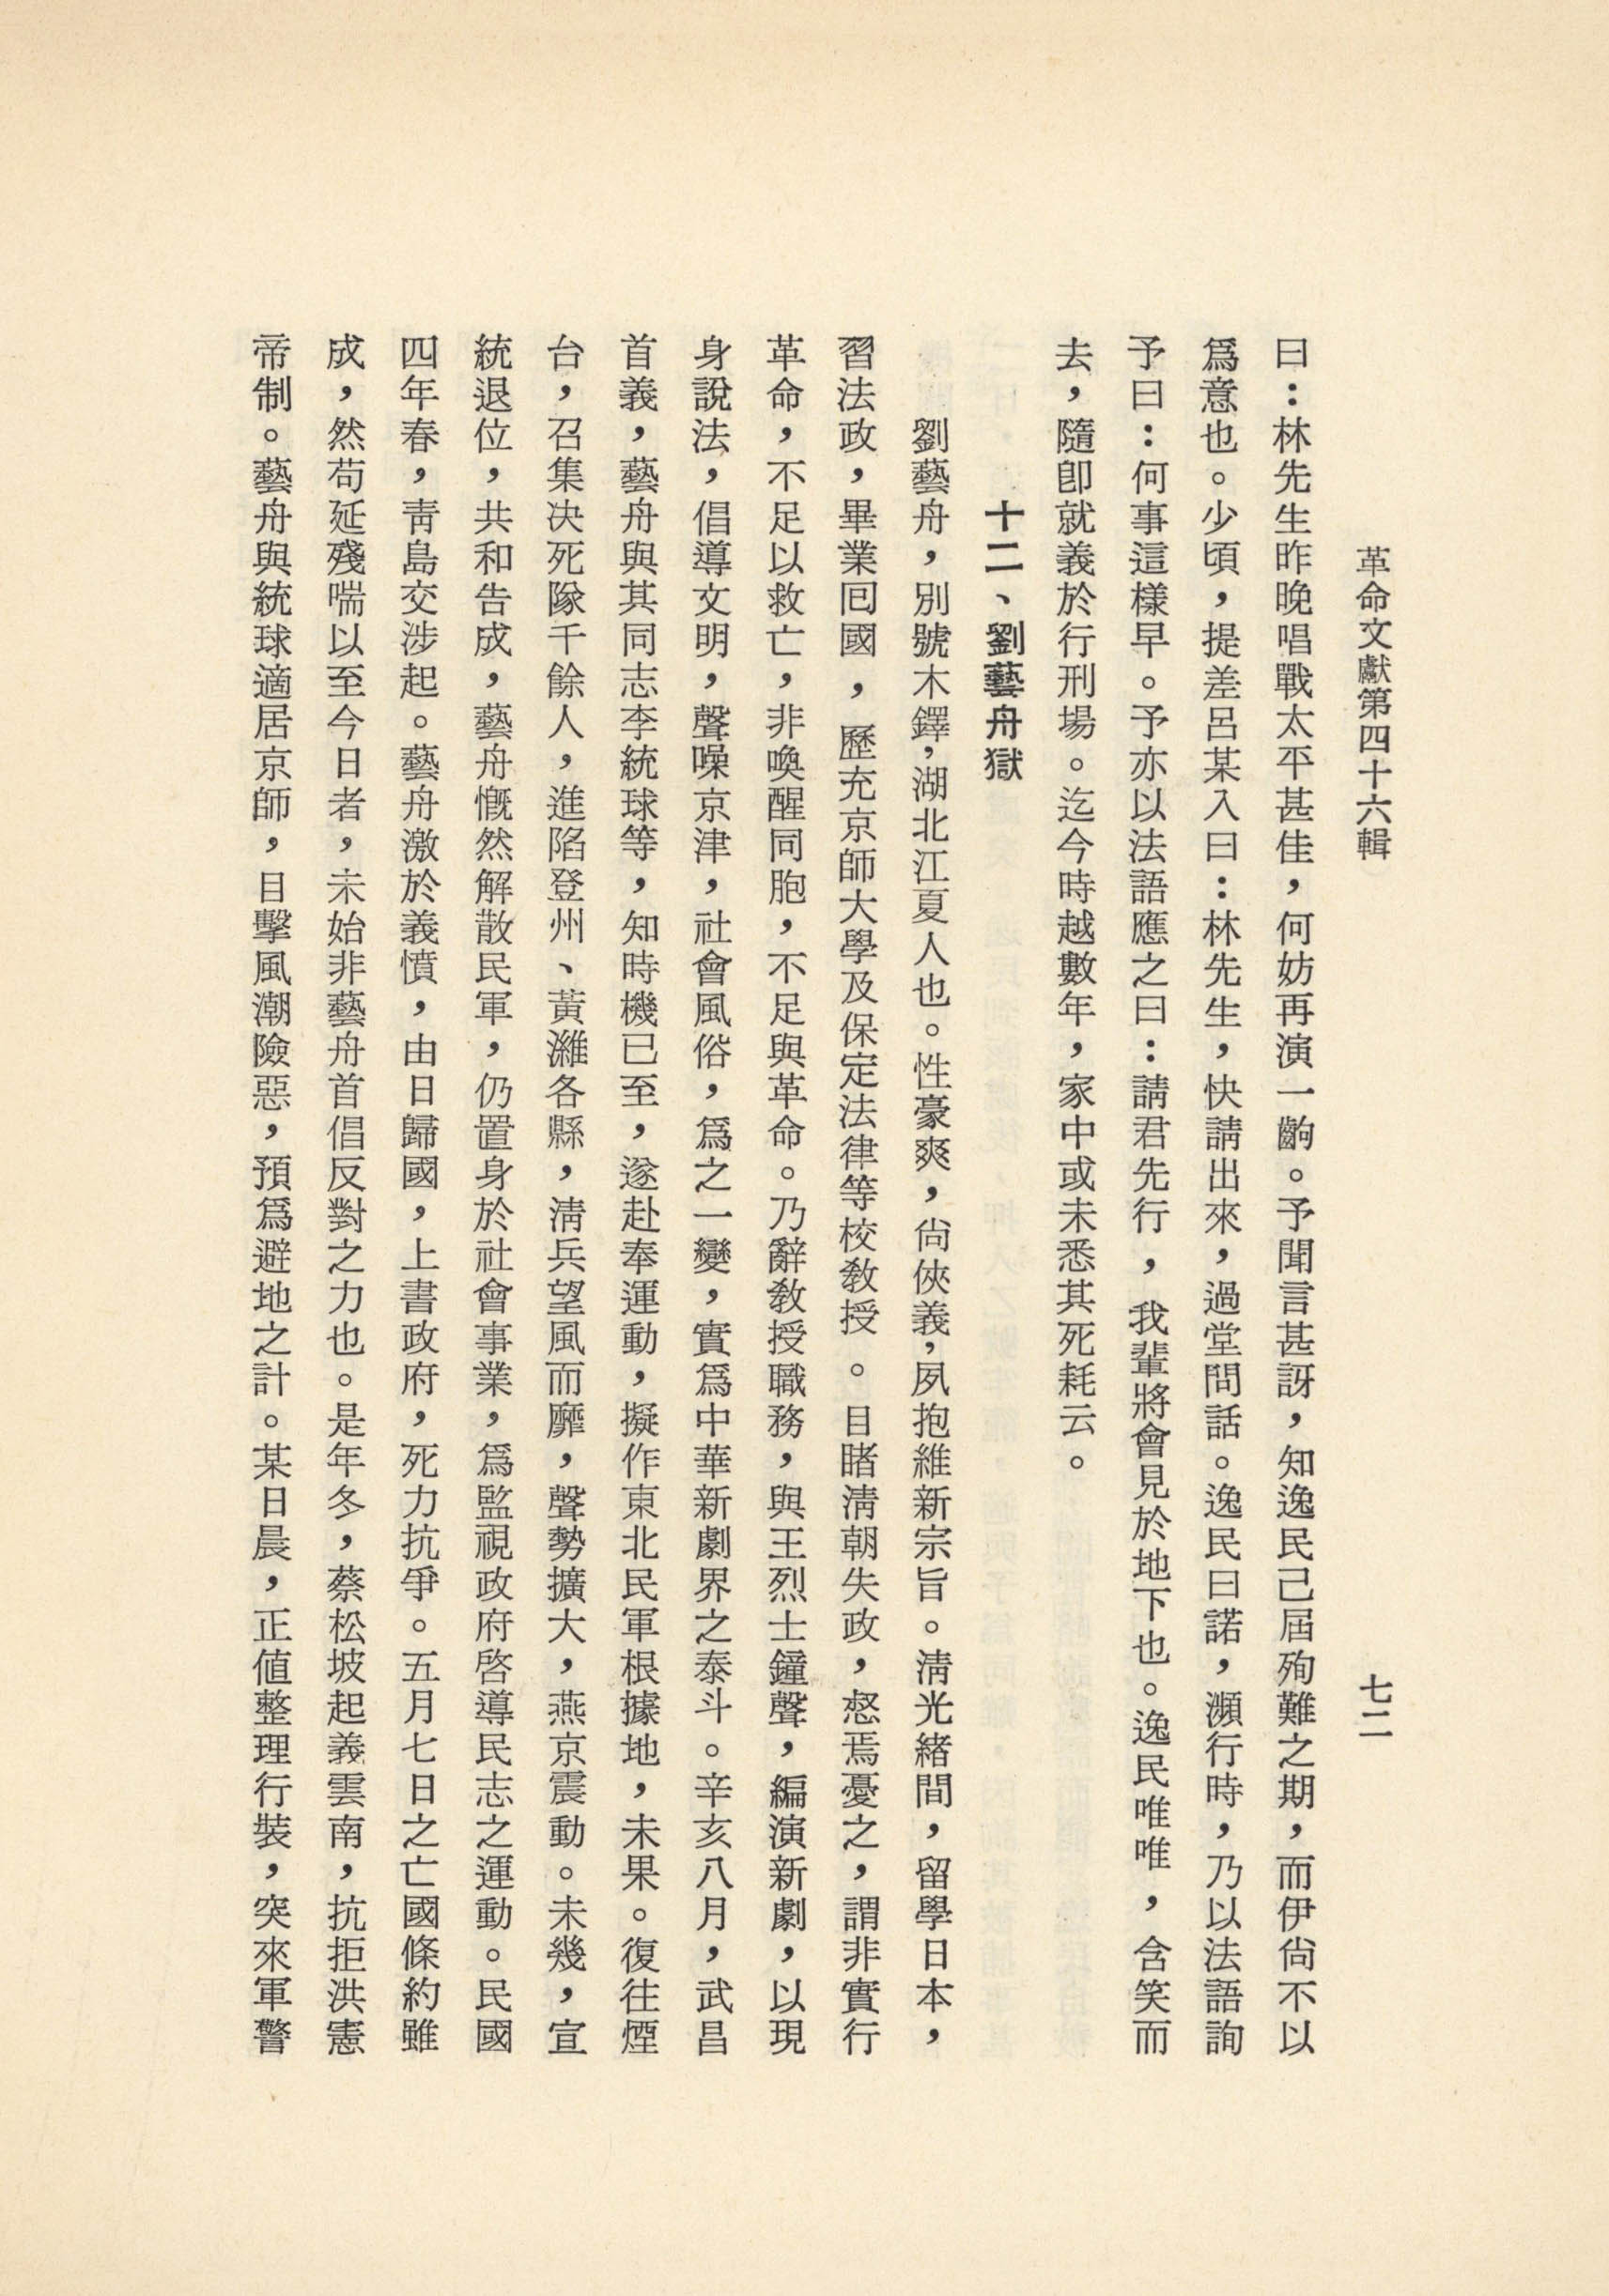 革命文獻第四十六輯
七二
曰：林先生昨晚唱戰太平甚佳，何妨再演一齣。予聞言甚訝，知逸民己屆殉難之期，而伊尙不以
爲意也。少頃，提差呂某入曰：林先生，快請出來，過堂問話。逸民曰諾，瀕行時，乃以法語詢
予曰：何事這樣早。予亦以法語應之曰：請君先行，我輩將會見於地下也。逸民唯唯，含笑而
去，隨卽就義於行刑場。迄今時越數年，家中或未悉其死耗云。
十二、劉藝舟獄
劉藝舟，別號木鐸，湖北江夏人也。性豪爽，尙俠義，夙抱維新宗旨。淸光緒間，留學日本，
習法政，畢業囘國，歷充京師大學及保定法律等校敎授。目睹淸朝失政，惄焉憂之，謂非實行
革命，不足以救亡，非喚醒同胞，不足與革命。乃辭敎授職務，與王烈士鐘聲，編演新劇，以現
身說法，倡導文明，聲噪京津，社會風俗，爲之一變，實爲中華新劇界之泰斗。辛亥八月，武昌
首義，藝舟與其同志李統球等，知時機已至，遂赴奉運動，擬作東北民軍根據地，未果。復往煙
台，召集決死隊千餘人，進陷登州、黃濰各縣，淸兵望風而靡，聲勢擴大，燕京震動。未幾，宣
統退位，共和告成，藝舟慨然解散民軍，仍置身於社會事業，爲監視政府啓導民志之運動。民國
四年春，靑島交涉起。藝舟激於義憤，由日歸國，上書政府，死力抗爭。五月七日之亡國條約雖
成，然苟延殘喘以至今日者，未始非藝舟首倡反對之力也。是年冬，蔡松坡起義雲南，抗拒洪憲
帝制。藝舟與統球適居京師，目擊風潮險惡，預爲避地之計。某日晨，正值整理行裝，突來軍警